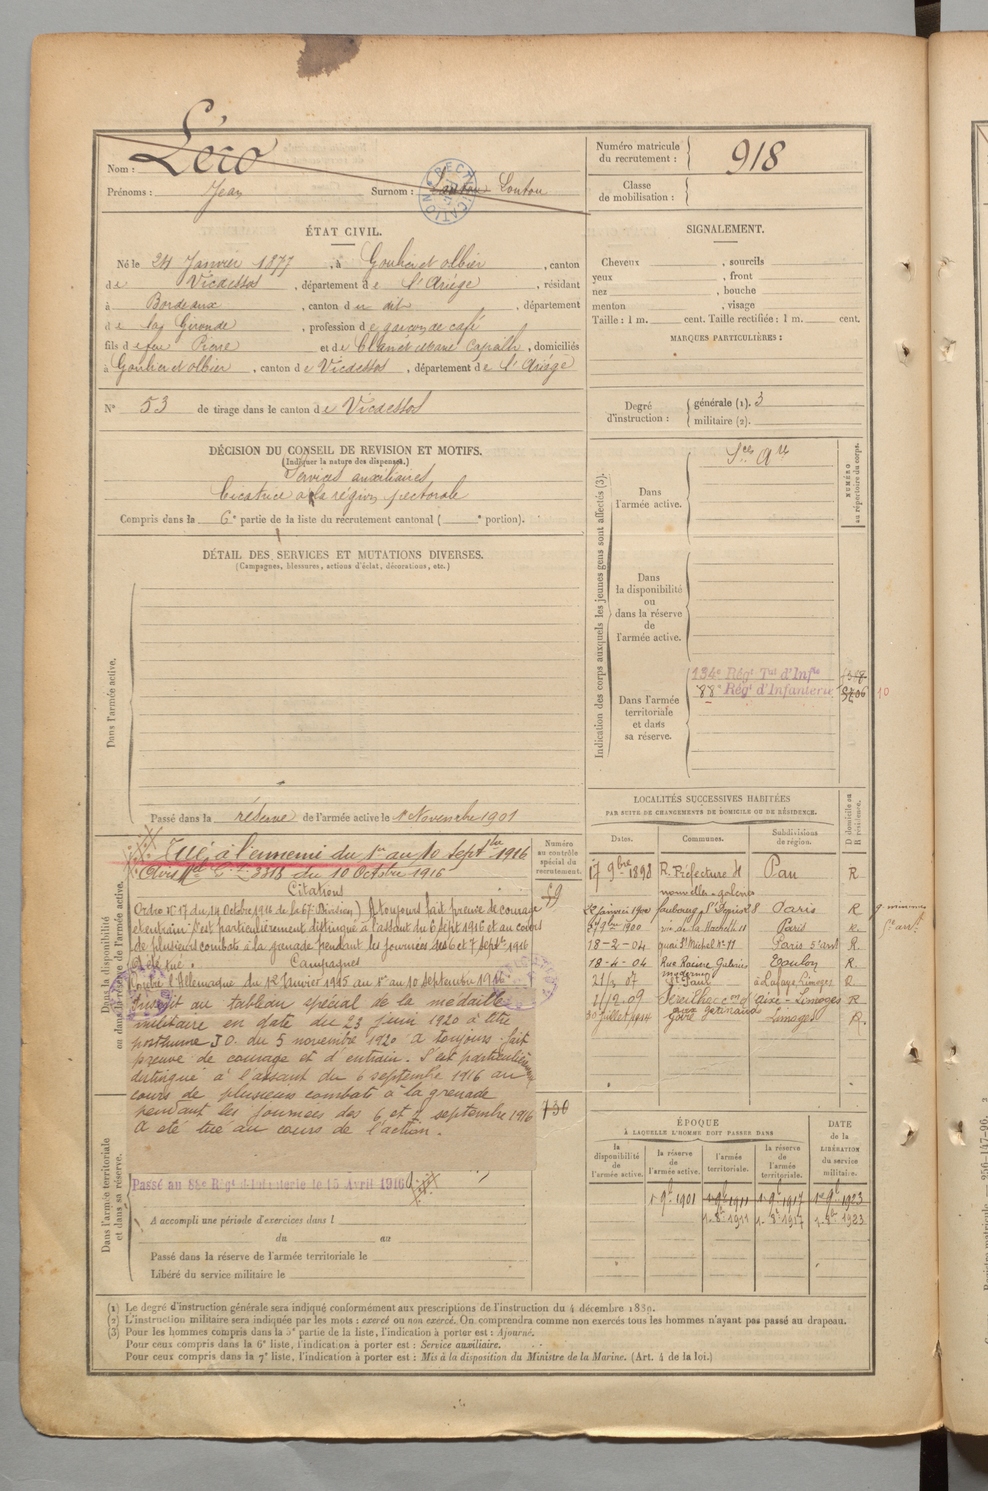 Nom : Léco
Prénoms : Jean Surnom : Loutou
Numéro matricule du recrutement : 918
Classe de mobilisation :
ÉTAT CIVIL.
Né le 24 Janvier 1877, à Goulier et olbier, canton
de Vicdessos, département de l'Ariège, résidant
à Bordeaux, canton du dit, département
de la Gironde, profession de garçon de café
fils de feu Pierre et de domiciliés
à Goulier et olbier, canton de Vicdessos, département de l'Ariége
N° 53 de tirage dans le canton de Vicdessos
DÉCISION DU CONSEIL DE REVISION ET MOTIFS.
(Indiquer la nature des dispenses.)
Services auxiliaires
Cicatrice à la région pectorale
Compris dans la 6e partie de la liste du recrutement cantonal ( e portion).
DÉTAIL DES SERVICES ET MUTATIONS DIVERSES.
(Campagnes, blessures, actions d'éclat, décorations, etc.)
Dans l'armée active.
Passé dans la réserve de l'armée active le 1er Novembre 1901
Dans la disponibilité ou dans la réserve de l'armée active.
Numéro au contrôle spécial du recrutement.
Tué à l'ennemi du 1er au 10 Septbre 1916
Avis 3313 du 10 Octobre 1916
Citations
Ordre N° 17 du 19 Octobre 1916 de la 67e Division) A toujours fait preuve de courage
et entrain s'est particulièrement distingué à l'assaut du 6 Sept 1916 et au cours
de plusieurs combats à la grenade pendant les journées des 6 et 7 septbre 1916
A été tué. Campagnes
Contre l'Allemagne du 12 Janvier 1915 au 1er au 10 Septembre 1916
Inscrit au tableau spécial de la médaille
militaire en date du 23 juin 1920 à titre
posthume J.O. du 5 novembre 1920 a toujours fait
preuve de courage et d'entrain. S'est particulièrement
distingué à l'assaut du 6 septembre 1916 au
cours de plusieurs combats à la grenade
pendant les journées des 6 et 7 septembre 1916
A été tué au cours de l'action.
59
730
Dans l'armée territoriale et dans sa réserve.
Passé au 88e Régt d'Infanterie le 15 Avril 1916
A accompli une période d'exercices dans l
du au
Passé dans la réserve de l'armée territoriale le
Libéré du service militaire le
SIGNALEMENT.
Cheveux , sourcils
yeux , front
nez , bouche
menton , visage
Taille : 1 m. cent. Taille rectifiée : 1 m. cent.
MARQUES PARTICULIÈRES :
Degré d'instruction : générale (1). 3
militaire (2).
Indication des corps auxquels les jeunes gens sont affectés (3).
NUMÉRO au répertoire du corps.
Dans l'armée active.
Sce Are
Dans la disponibilité ou dans la réserve de l'armée active.
Dans l'armée territoriale et dans sa réserve.
134e Régt Tal d'Infie
88e Régt d'Infanterie
10
LOCALITÉS SUCCESSIVES HABITÉES
PAR SUITE DE CHANGEMENTS DE DOMICILE OU DE RÉSIDENCE.
Dates. Communes. Subdivisions de région. D domicile ou R résidence.
17 9bre 1898 R. Préfecture Pau R
1900 faubourg St Denis Paris R
1900 rue de la Huchette 11 Paris R.
18-2-04 quai St Michel N° 11 Paris R.
18-4-04 Rue Racine Galeries moderne Toulon R.
07 St Paul Limoges R
09 Limoges R
30 juillet 1914 Limoges R.
ÉPOQUE
À LAQUELLE L'HOMME DOIT PASSER DANS
DATE de la LIBÉRATION du service militaire.
la disponibilité de l'armée active.
la réserve de l'armée active.
l'armée territoriale.
la réserve de l'armée territoriale.
1er 9b 1901 1er 9b 1911 1er 9b 1917 1er 9b 1923
1er 8b 1911 1er 8b 1917 1er 8b 1923
(1) Le degré d'instruction générale sera indiqué conformément aux prescriptions de l'instruction du 4 décembre 1889.
(2) L'instruction militaire sera indiquée par les mots : exercé ou non exercé. On comprendra comme non exercés tous les hommes n'ayant pas passé au drapeau.
(3) Pour les hommes compris dans la 5e partie de la liste, l'indication à porter est : Ajourné.
Pour ceux compris dans la 6e liste, l'indication à porter est : Service auxiliaire.
Pour ceux compris dans la 7e liste, l'indication à porter est : Mis à la disposition du Ministre de la Marine. (Art. 4 de la loi.)